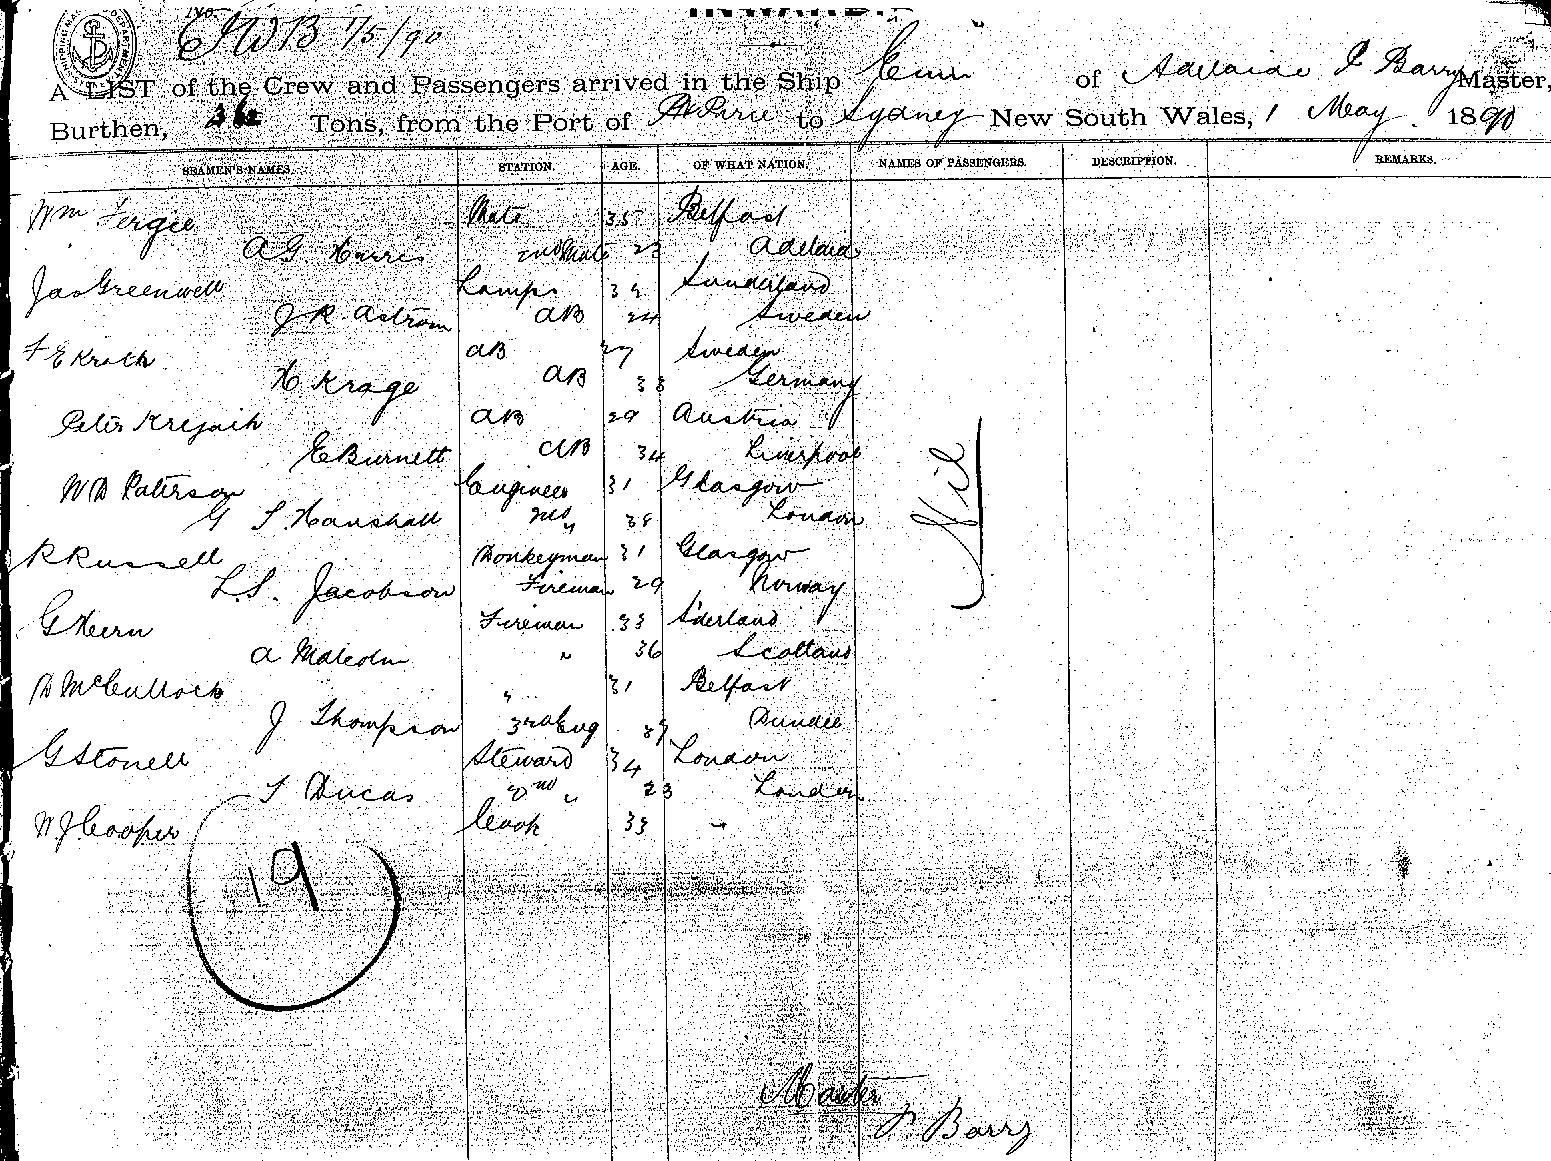 No.
INWARD.
EWB 1/5/90
A LIST of the Crew and Passengers arrived in the Ship of Adelaide P Barry Master,
Burthen, Tons, from the Port of Pt Pirie to Sydney New South Wales, 1 May. 1890
SEAMEN'S NAMES. STATION. AGE. OF WHAT NATION. NAMES OF PASSENGERS. DESCRIPTION. REMARKS.
Wm Fergie Mate 35 Belfast
A G Harris 2nd Mate 23 Adelaide
Jas Greenwell Lamps 39 Sunderland
J R Astrom AB 24 Sweden
F E Krath AB 27 Sweden
H Krage AB 38 Germany
Peter AB 29 Austria
E Burnett AB 34 Liverpool
W D Paterson Engineer 31 Glasgow
G S Hanshall 2nd " 38 London
R Russell Donkeyman 31 Glasgow
L.S. Jacobson Fireman 29 Norway
G Hern Fireman 33 S'derland
A Malcolm " 36 Scotland
D McCulloch " 31 Belfast
J Thompson 3rd Eng 39 Dundee
G Stonell Steward 34 London
S Ducas 2nd " 23 London
W J Cooper Cook 33 "
Nil
19
Master
P. Barry